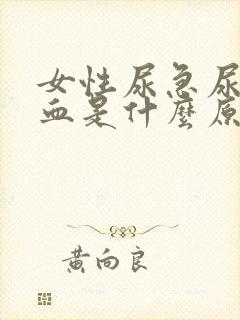 女性尿急尿
血是什麼原
黃向良